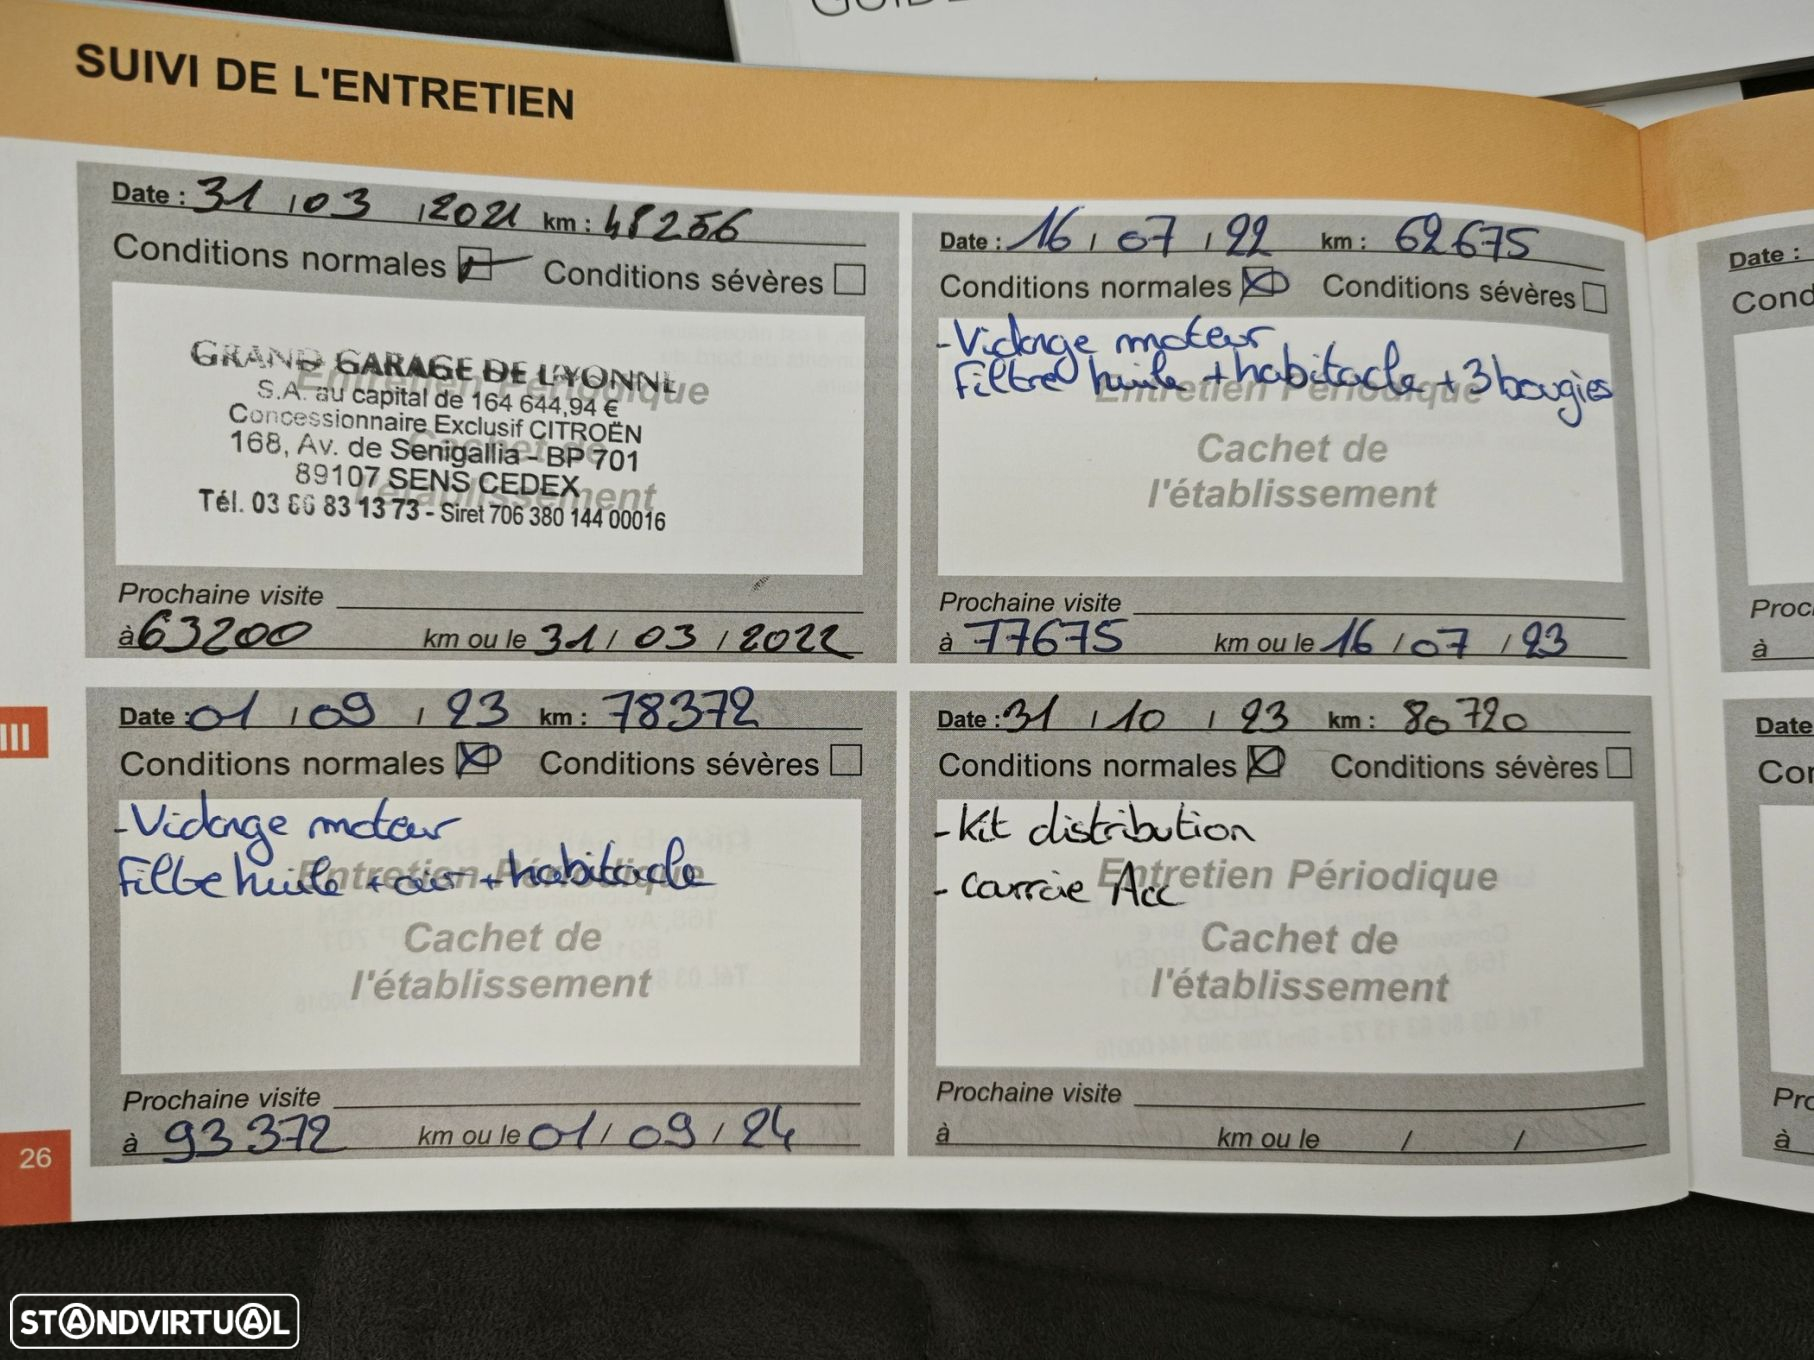 GUIDE
SUIVI DE L'ENTRETIEN
Date : 31 / 03 / 2021 km : 48256
Conditions normales Conditions sévères
GRAND GARAGE DE L'YONNE
S.A. au capital de 164 644,94 €
Concessionnaire Exclusif CITROËN
168, Av. de Senigallia - BP 701
89107 SENS CEDEX
Tél. 03 86 83 13 73 - Siret 706 380 144 00016
Entretien Périodique
Cachet de
l'établissement
Prochaine visite
à 63200 km ou le 31 / 03 / 2022
Date : 16 / 07 / 22 km : 62675
Conditions normales Conditions sévères
- Vidange moteur
Filtre huile + habitacle + 3 bougies
Entretien Périodique
Cachet de
l'établissement
Prochaine visite
à 77675 km ou le 16 / 07 / 23
Date : 01 / 09 / 23 km : 78372
Conditions normales Conditions sévères
- Vidange moteur
Filtre huile + air + habitacle
Entretien Périodique
Cachet de
l'établissement
Prochaine visite
à 93372 km ou le 01 / 09 / 24
Date : 31 / 10 / 23 km : 80720
Conditions normales Conditions sévères
- Kit distribution
- Courroie Acc
Entretien Périodique
Cachet de
l'établissement
Prochaine visite
à km ou le / /
Date :
Cond
Proc
à
Date
Con
Pro
à
III
26
STANDVIRTUAL